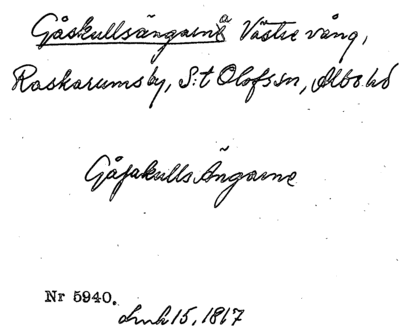 Gåskullsängarna Västre vång,
Raskarums by, S:t Olofs sn, Albo hd
Gåsakulls Ängarne
Nr 5940.
15, 1817